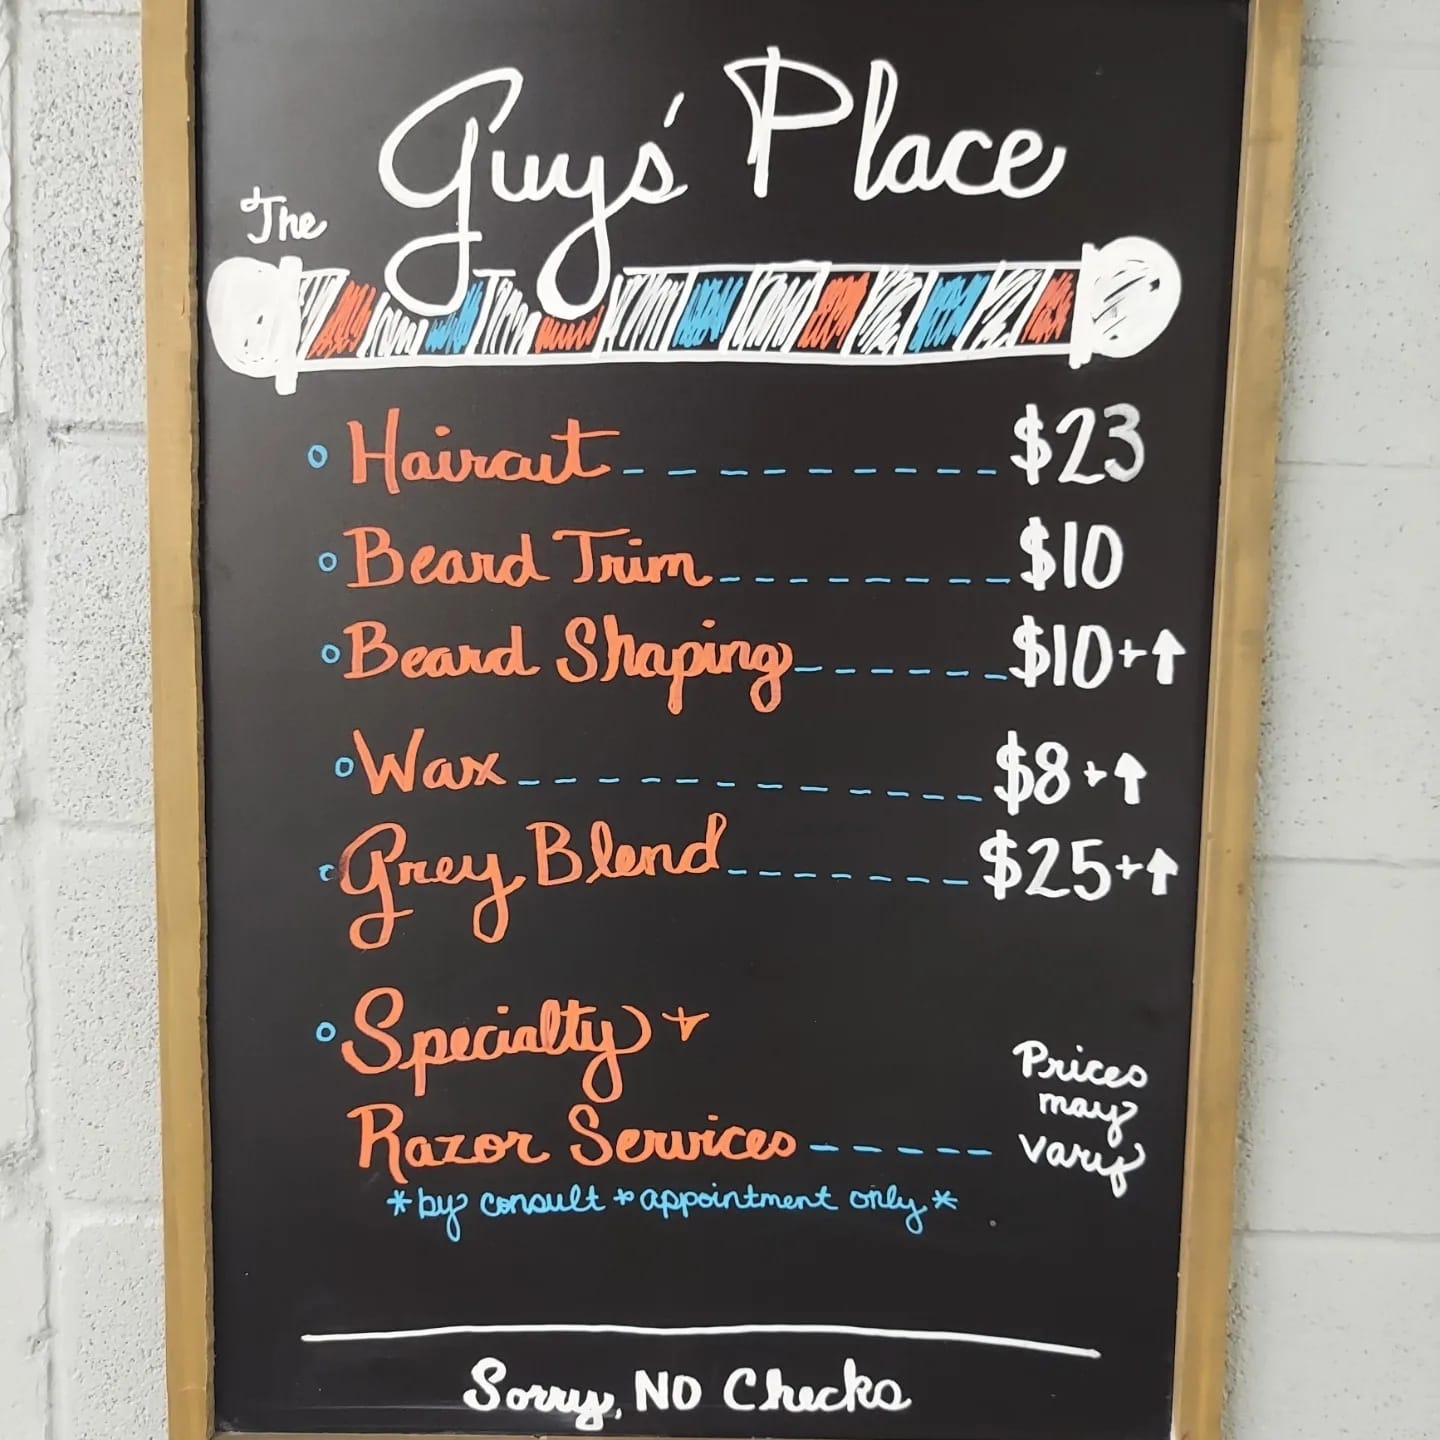 The Guys' Place
Haircut $23
Beard Trim $10
Beard Shaping $10+↑
Wax $8+↑
Grey Blend $25+↑
Specialty +
Razor Services
Prices
may
vary
*by consult + appointment only*
Sorry, NO Checks